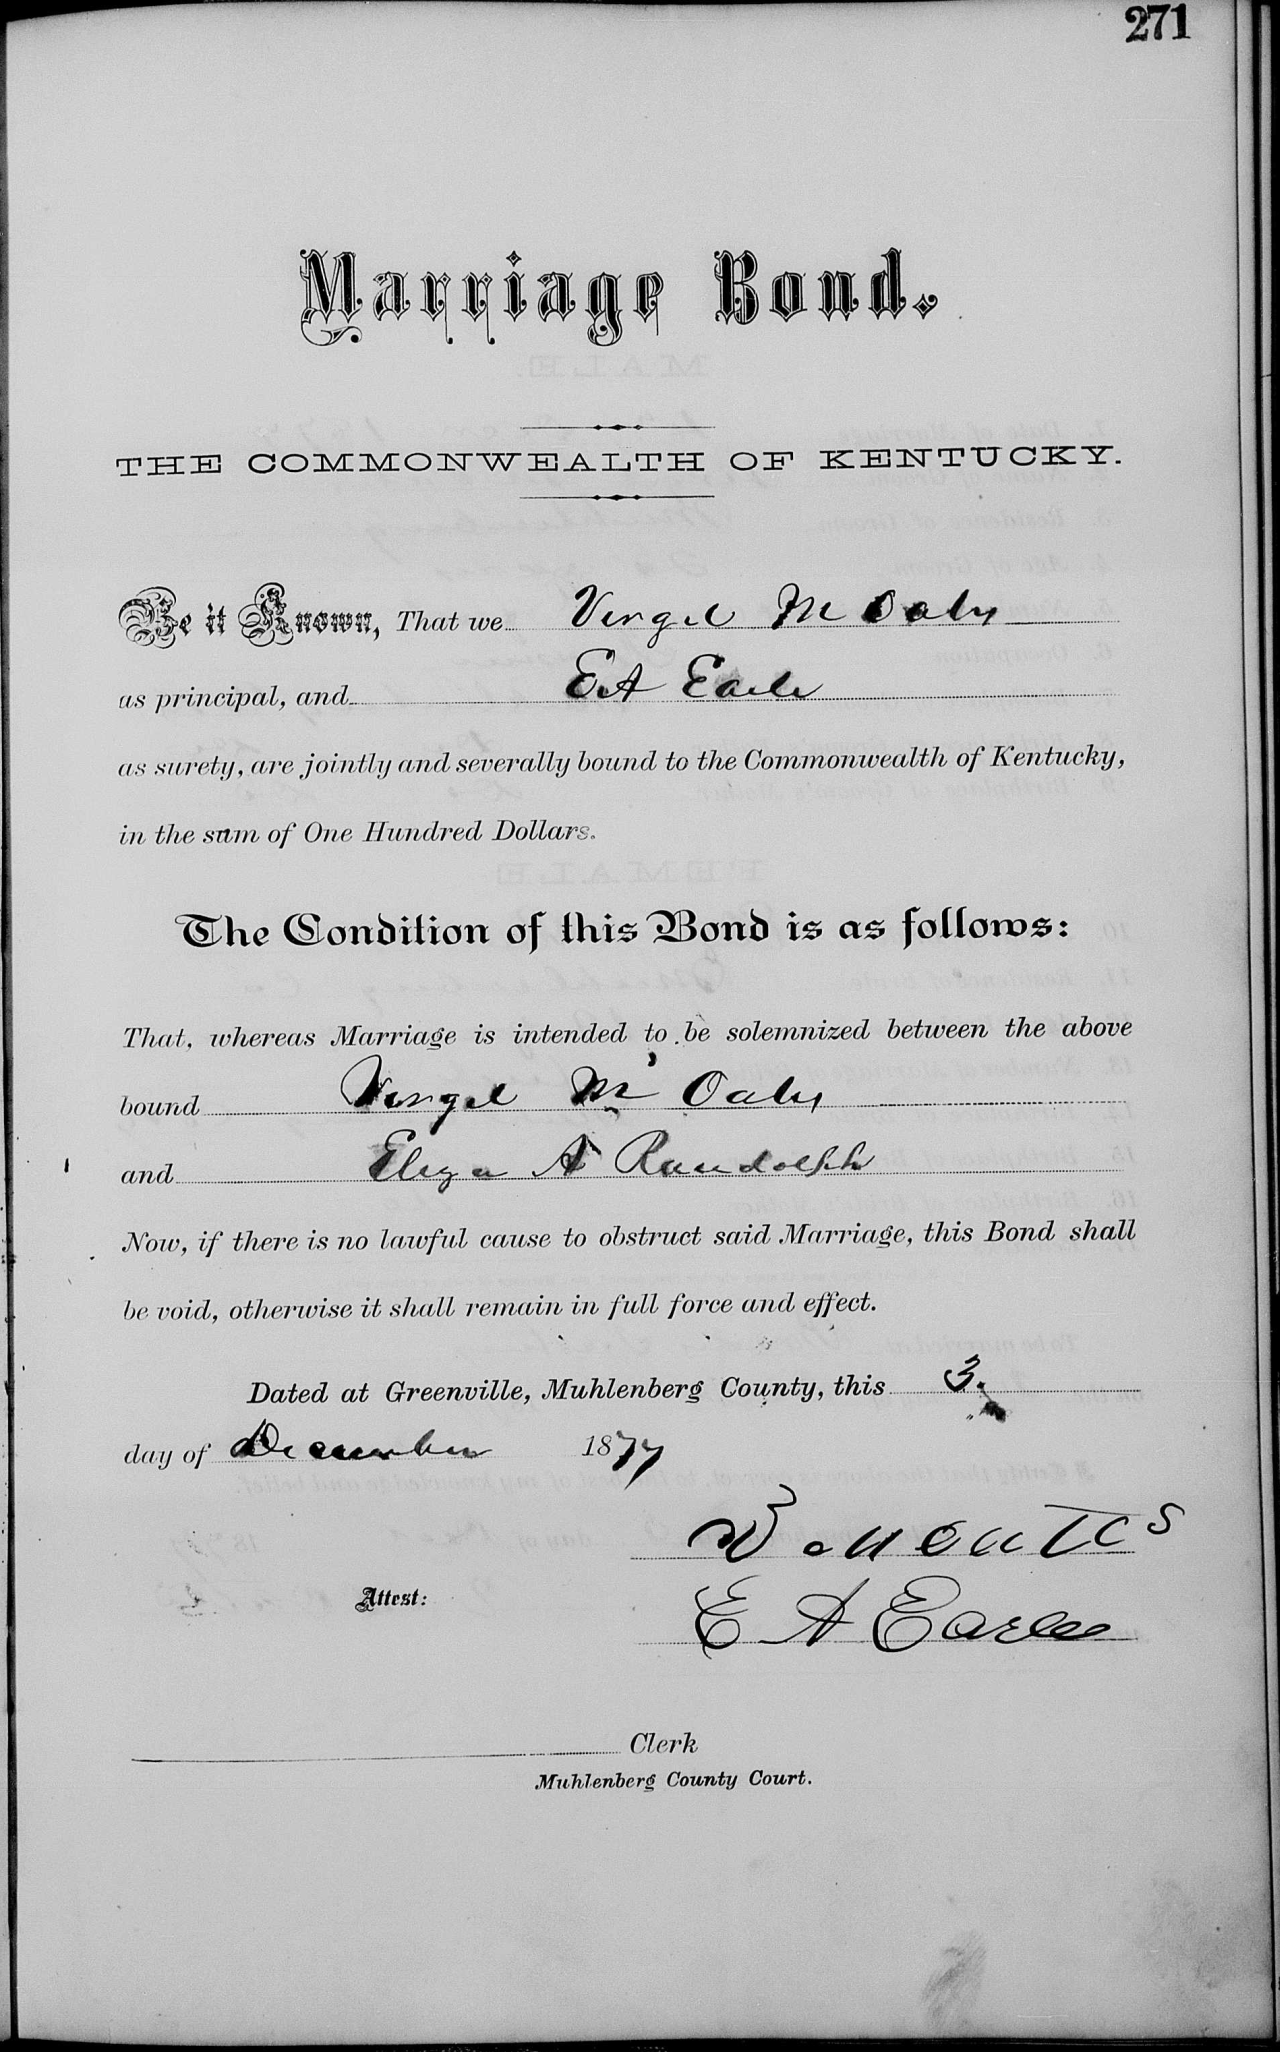 271
Marriage Bond.
THE COMMONWEALTH OF KENTUCKY.
Be it Known, That we Virgil M Oates
as principal, and E.A Earle
as surety, are jointly and severally bound to the Commonwealth of Kentucky,
in the sum of One Hundred Dollars.
The Condition of this Bond is as follows:
That, whereas Marriage is intended to be solemnized between the above
bound Virgil M Oates
and Eliza A Randolph
Now, if there is no lawful cause to obstruct said Marriage, this Bond shall
be void, otherwise it shall remain in full force and effect.
Dated at Greenville, Muhlenberg County, this 3.
day of December 1877
Attest:
E A Earle
Clerk
Muhlenberg County Court.